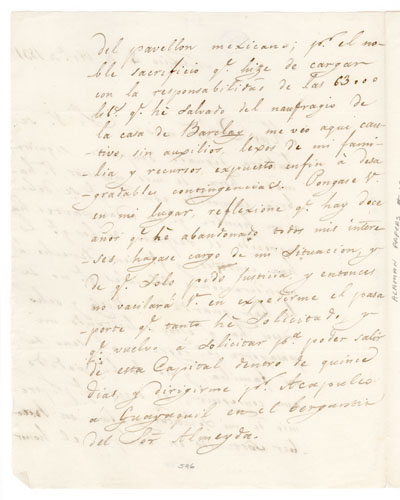 del pavellon mexicano; pr. el no-
ble sacrificio qe. hize de cargar
con la responsabilidad de las 63.000
lbs. qe. hé salvado del naufragio de
la casa de Barclay me veo aqui cau-
tivo, sin auxilios, lexos de mi fami-
lia y recursos expuesto enfin à desa-
gradables contingencias. Pongase V.
en mi lugar, reflexione qe. hay doce
años qe. hé abandonado todos mis interes-
ses, hagase cargo de mi situacion, y
de qe. solo pido justicia y entonces
no vacilará V. en expedirme el pasa
porte qe. tanto hé solicitado, y
qe. vuelvo á solicitar pa. poder salir
de esta Capital dentro de quince
dias, y dirigirme pr. Acapulco
a Guayaquil en el bergantin
del Sor. Almeyda.
546
ALAMAN PAPERS